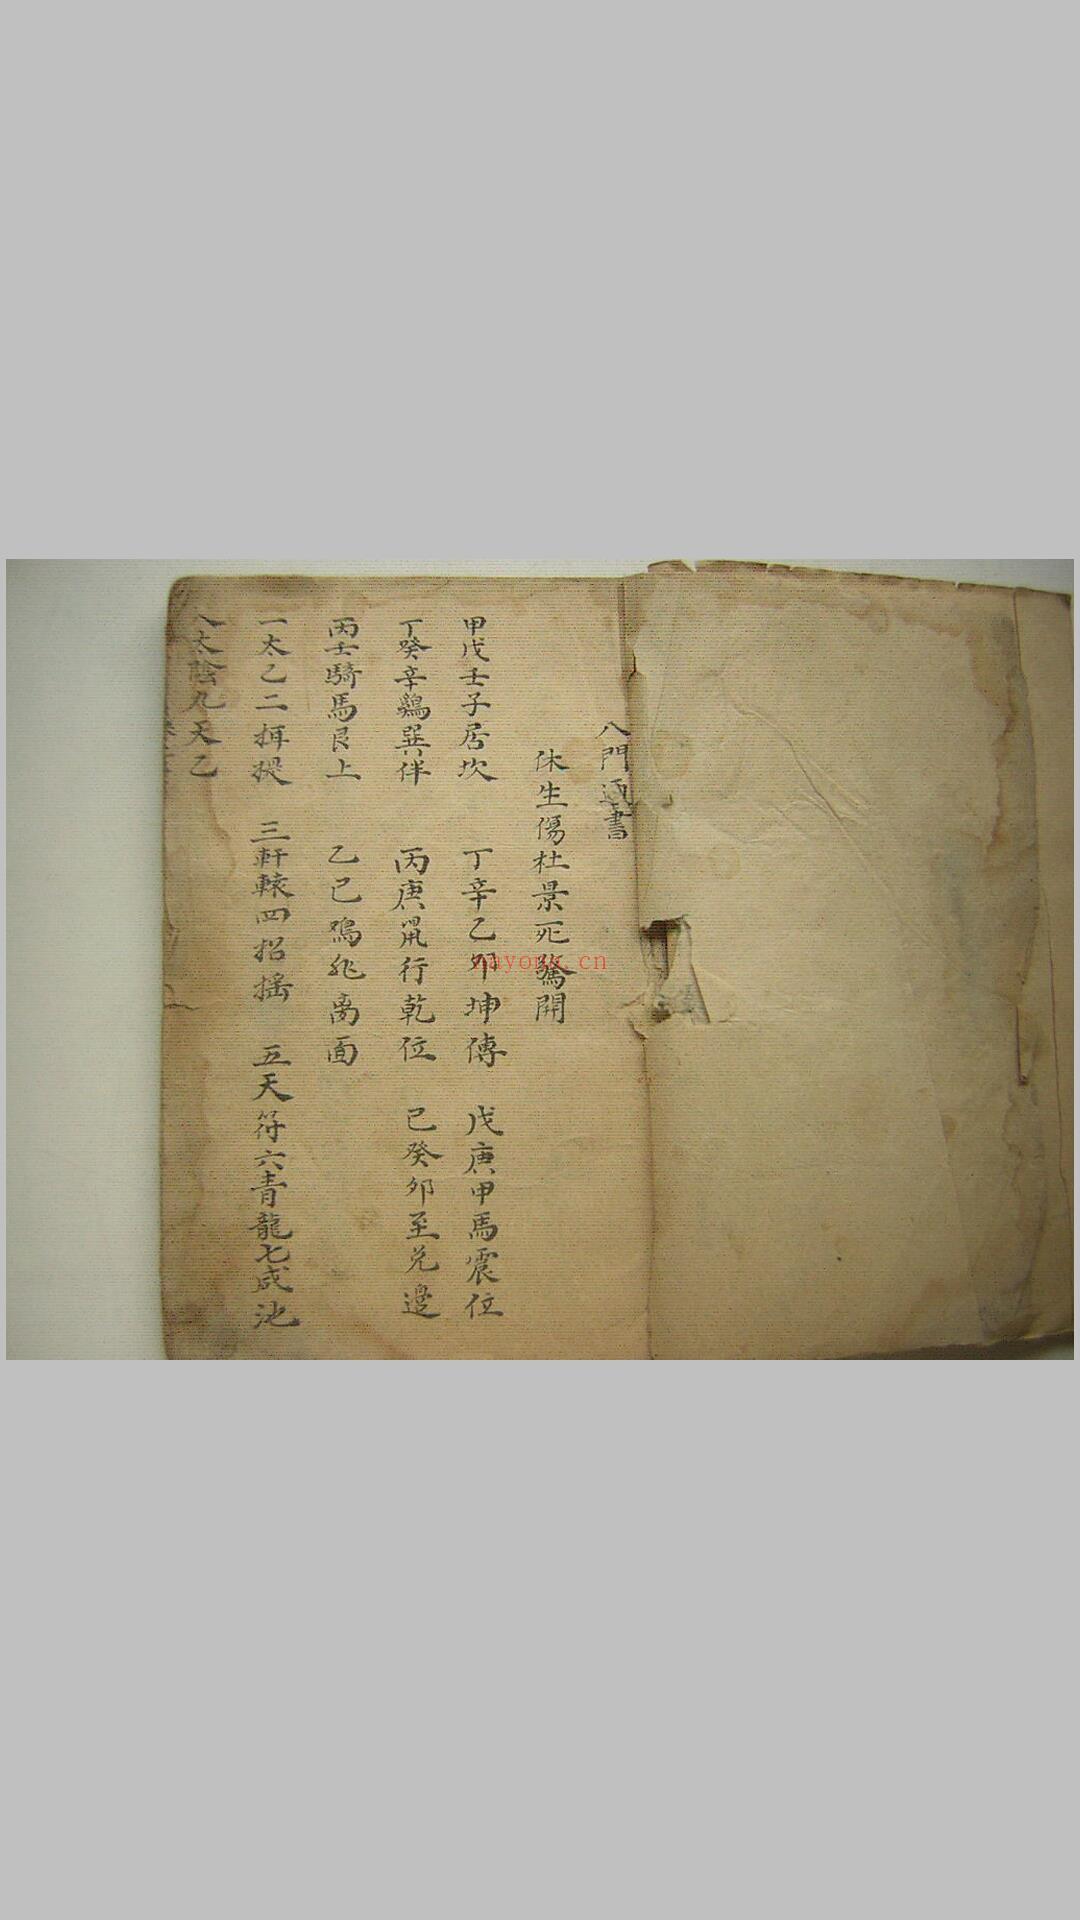 八門通書
休生傷杜景死驚開
甲戊壬子居坎 丁辛乙卯坤傳 戊庚甲馬震位
丁癸辛鷄巽伴 丙庚鼠行乾位 已癸卯至兑邉
丙壬騎馬艮上 乙巳鳮飛离面
一太乙二 三軒轅四招摇 五天符六青龍七咸池
八太陰九天乙
nayong.cn